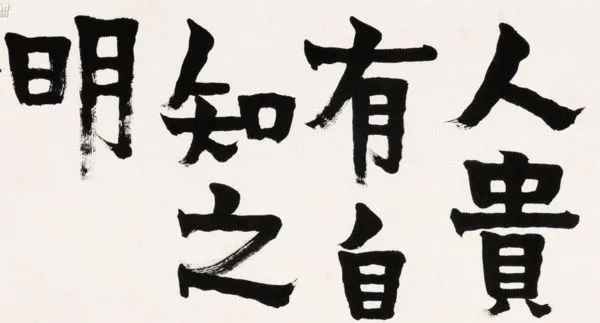 人貴
有自
知之
明